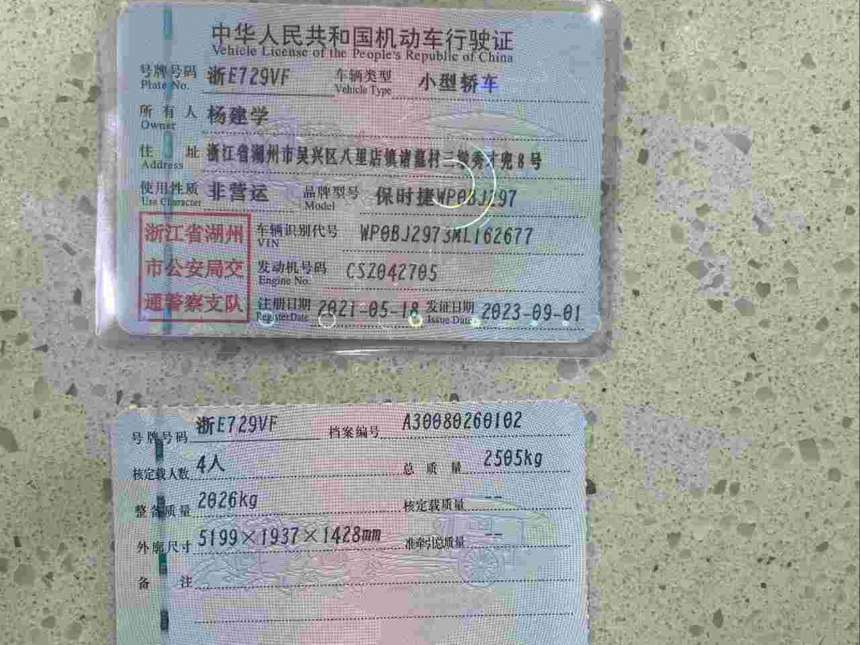 中华人民共和国机动车行驶证
Vehicle License of the People's Republic of China
号牌号码 浙E729VF 车辆类型 小型轿车
Plate No. Vehicle Type
所有人 杨建学
Owner
住址 浙江省湖州市吴兴区八里店镇诸墓村二墩秀才兜8号
Address
使用性质 非营运 品牌型号 保时捷WP0BJ297
Use Character Model
浙江省湖州
市公安局交
通警察支队
车辆识别代号 WP0BJ2973ML162677
VIN
发动机号码 CSZ042705
Engine No.
注册日期 2021-05-18 发证日期 2023-09-01
Register Date Issue Date
号牌号码 浙E729VF 档案编号 A30080260102
核定载人数 4人 总质量 2505kg
整备质量 2026kg 核定载质量 --
外廓尺寸 5199×1937×1428mm 准牵引总质量 --
备注